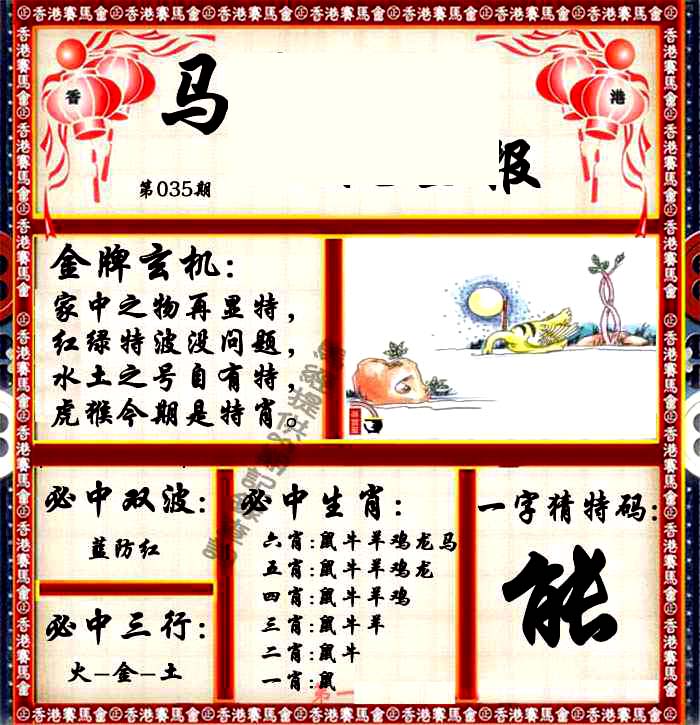 ㊣香港賽馬會㊣香港賽馬會㊣香港賽馬會㊣香港賽馬會㊣香港賽馬會㊣香港賽馬會㊣
香
马
港
报
第035期
金牌玄机:
家中之物再显特，
红绿特波没问题，
水土之号自有特，
虎猴今期是特肖。
必中双波:
蓝防红
必中三行:
火-金-土
必中生肖:
六肖:鼠牛羊鸡龙马
五肖:鼠牛羊鸡龙
四肖:鼠牛羊鸡
三肖:鼠牛羊
二肖:鼠牛
一肖:鼠
第一
一字猜特码:
能